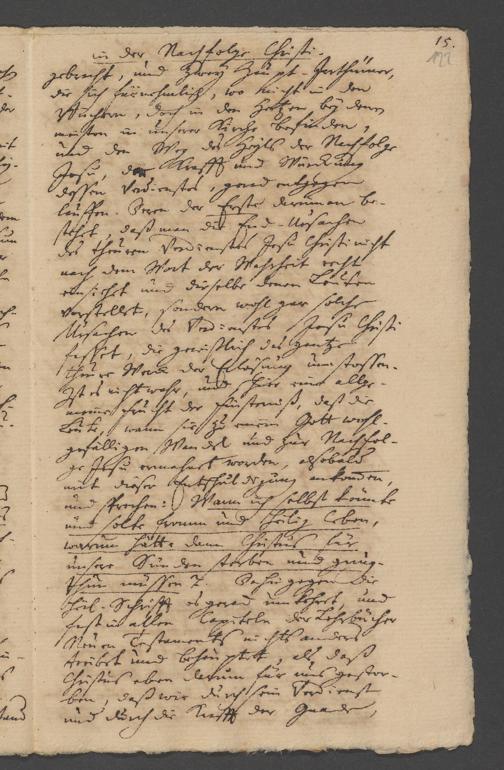 15.
122
in der Nachfolge Christi.
gebracht, und zwey Haupt-Irrthümer,
die sich fürnehmlich, wo nicht in den
Büchern, doch in den Hertzen bey denen
meisten in unserer Kirche befinden,
und den Weg des Heyls der Nachfolge
Jesu, der Krafft und Würckung
dessen Verdienstes, gerad entgegen
lauffen. Deren der Erste darinnen be-
stehet, daß man die End-Ursachen
des theuren Verdienstes Jesu Christi nicht
nach dem Wort der Wahrheit recht
einsiehet und dieselbe denen Leuten
vorstellet, sondern wohl gar solche
Ursachen des Verdienstes Jesu Christi
setzet, die gewißlich das gantze
theure Werck der Erlösung umstossen.
Ist es nicht wahr, und hier eine allge-
meine Frucht der Finsterniß, daß die
Leute, wann sie zu einem Gott wohl-
gefälligen Wandel und zur Nachfol-
ge Jesu ermahnet worden, alsobald
mit dieser Entschuldigung ankommen,
und sprechen: Wann ich selbst könnte
und solte fromm und heilig leben,
warum hätte dann Christus für
unsere Sünden sterben und gnug-
thun müssen? Dahingegen die
Heil. Schrifft es gerad umkehret und
fast in allen Capiteln der Lehrbücher
Neuen Testaments nichts anders
treibet und behauptet, als daß
Christus eben darum für uns gestor-
ben, daß wir durch sein Verdienst
und durch die Krafft der Gnade,